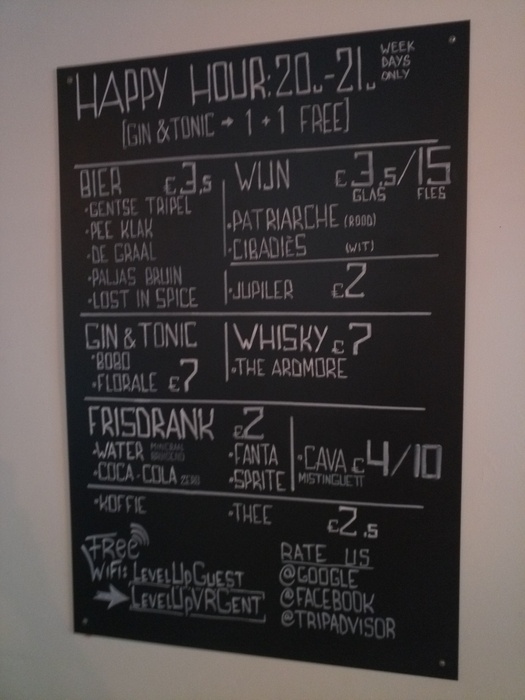 HAPPY HOUR: 20u-21u WEEK DAYS ONLY
[GIN & TONIC → 1 + 1 FREE]
BIER €3,5
·GENTSE TRIPEL
·PEE KLAK
·DE GRAAL
·PALJAS BRUIN
·LOST IN SPICE
WIJN €3,5/15
GLAS FLES
·PATRIARCHE (ROOD)
·CIBADIÈS (WIT)
·JUPILER €2
GIN & TONIC
·BOBO
·FLORALE €7
WHISKY €7
·THE ARDMORE
FRISDRANK €2
·WATER
·COCA-COLA ZERO
·FANTA
·SPRITE
·CAVA €4/10
MISTINGUETT
·KOFFIE
·THEE
€2,5
FRee
WiFi: LEVELUPGUEST
→ LEVELUPVRGENT
RATE US
@GOOGLE
@FACEBOOK
@TRIPADVISOR